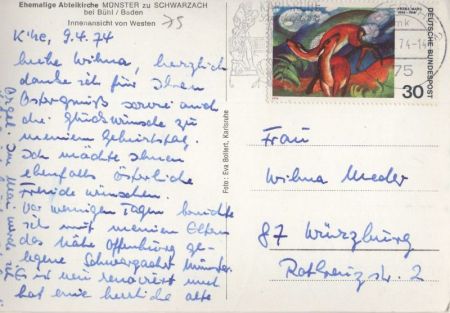 Ehemalige Abteikirche MÜNSTER zu SCHWARZACH
bei Bühl / Baden
Innenansicht von Westen
K'he, 9.4.74
Liebe Wilma, herzlich
danke ich für Ihren
Ostergruß sowie auch
die Glückwünsche zu
meinem Geburtstag.
Ich möchte Ihnen
ebenfalls österliche
Freude wünschen.
Vor wenigen Tagen besuchte
ich mit meinen Eltern
das nahe Offenburg ge-
legene Schwarzacher Münster.
Es ist neu renoviert und
hat eine herrliche alte
Foto: Eva Bollert, Karlsruhe
FRANZ MARC
DEUTSCHE BUNDESPOST
30
75
Frau
Wilma Meder
87 Würzburg
Rotkreuzstr. 2